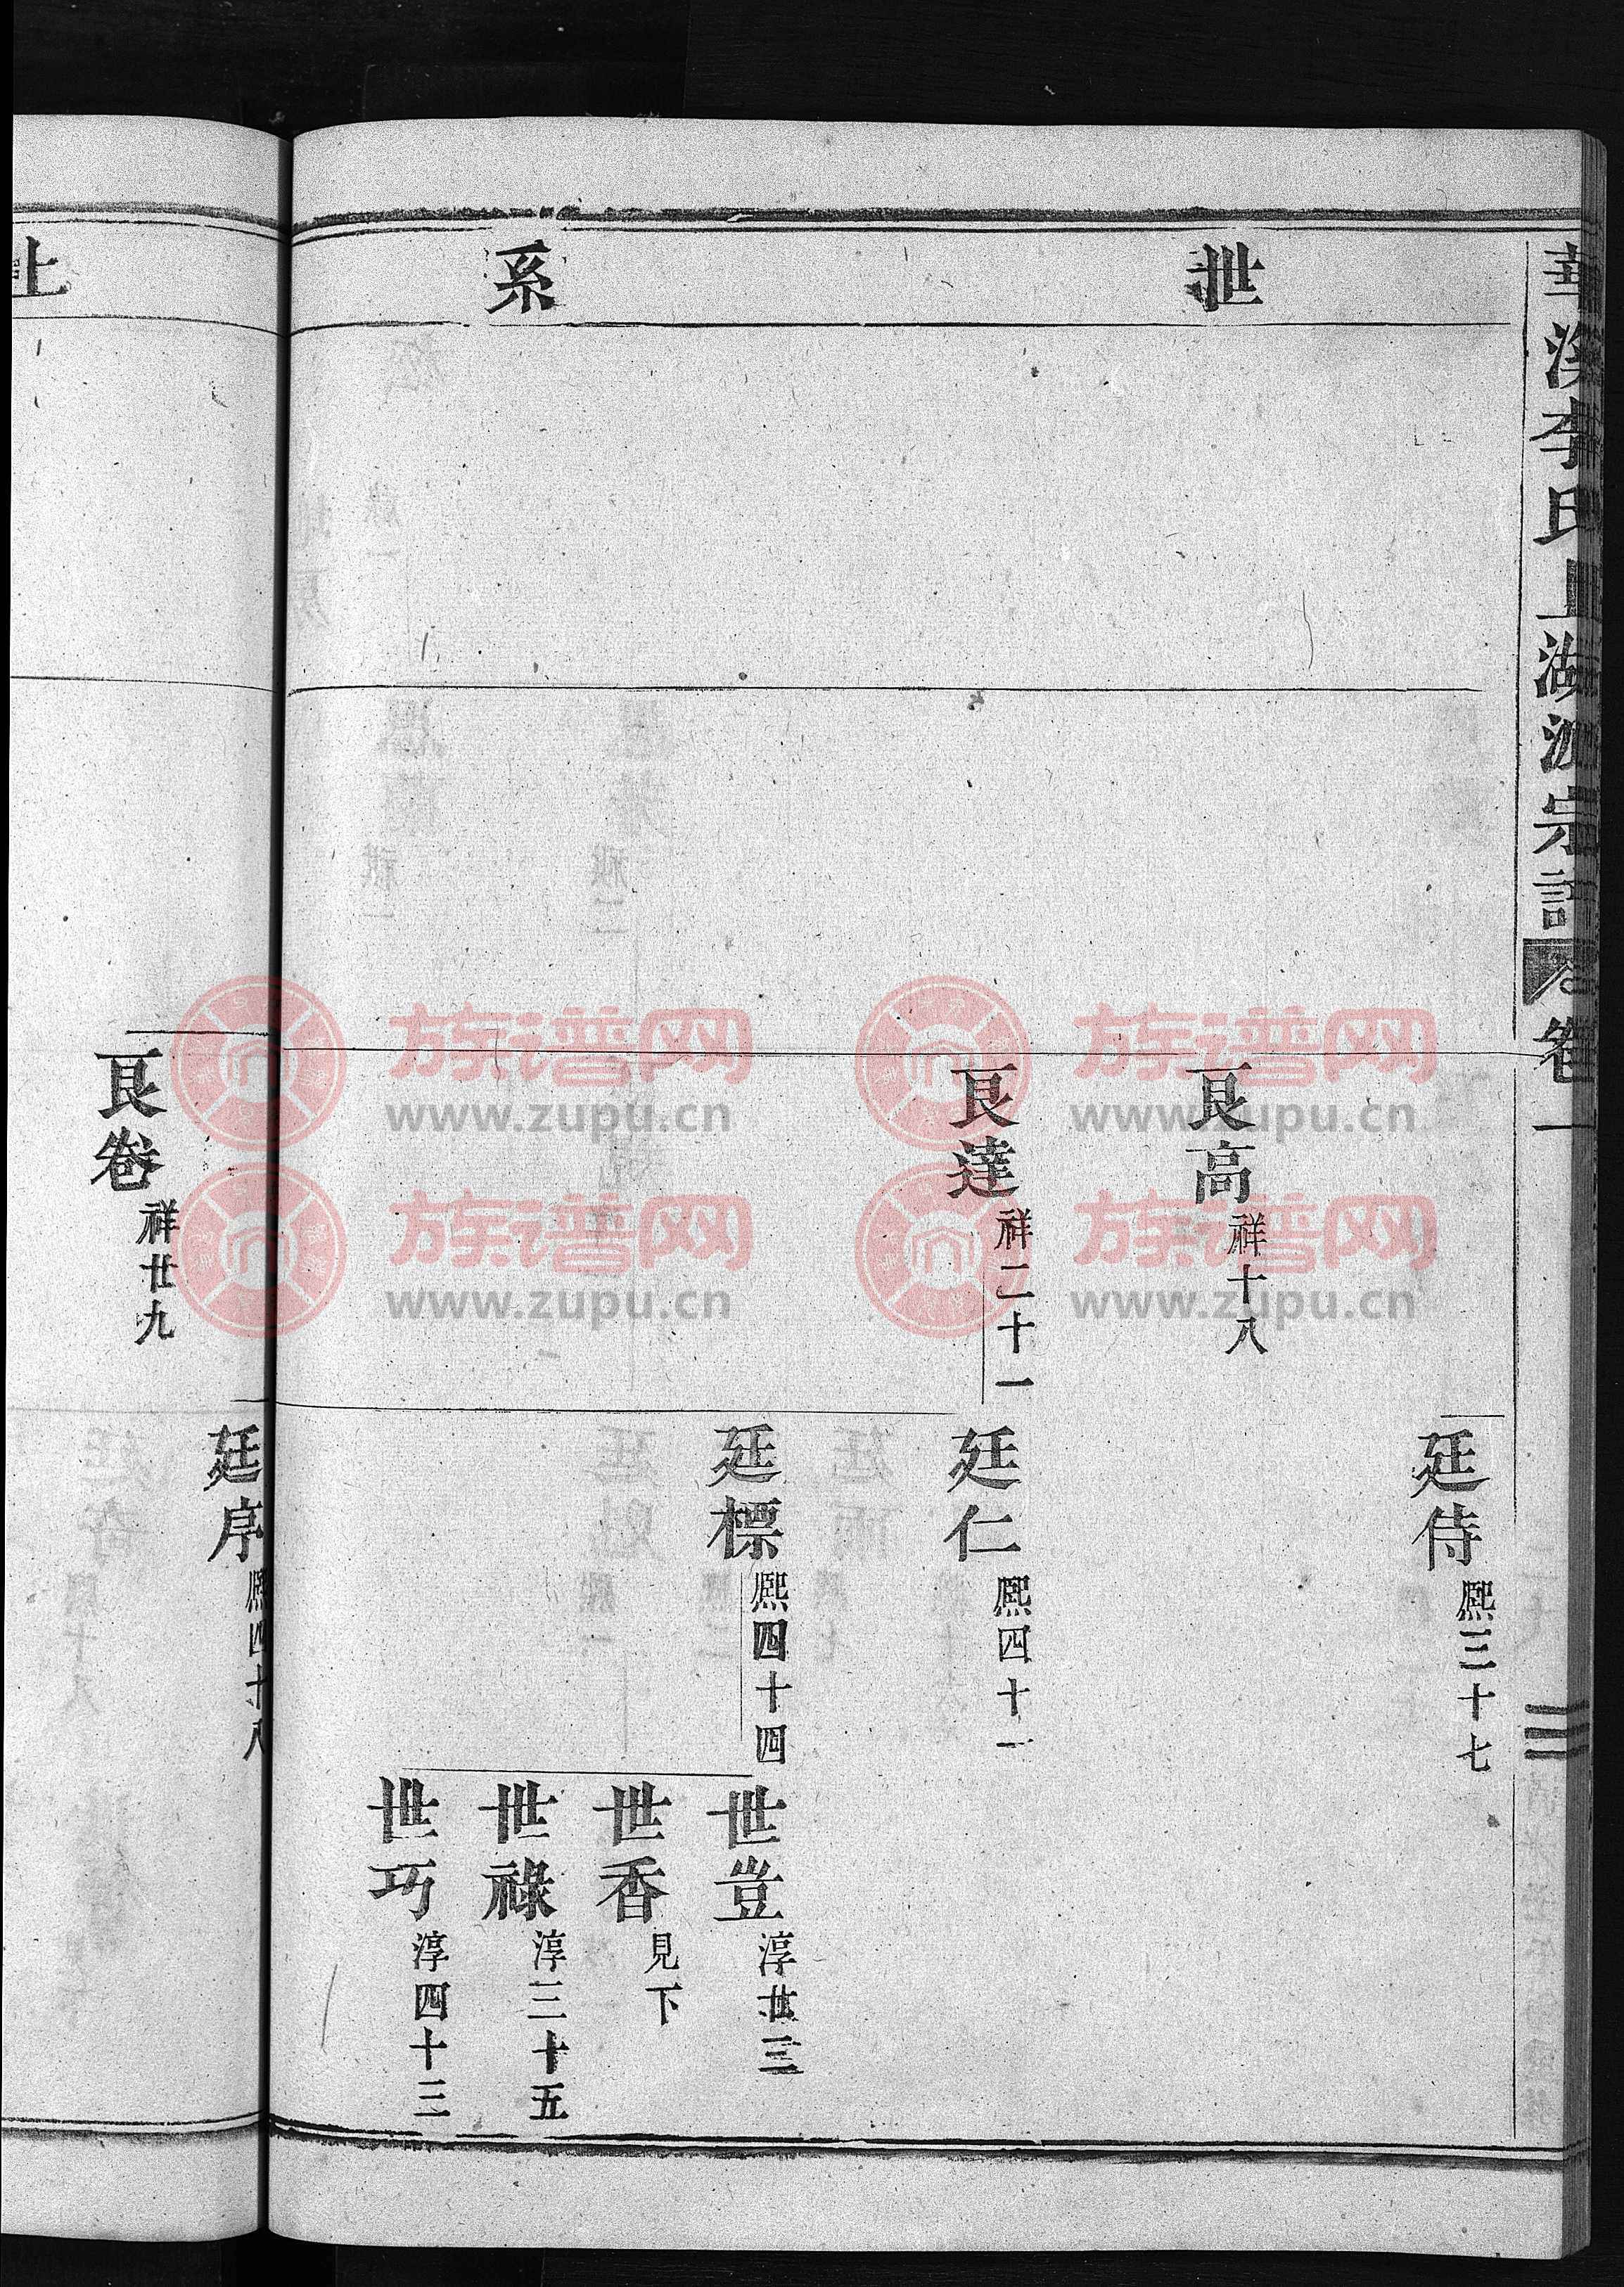 華溪李氏上湖派宗譜
卷一
世系
廷侍 熙三十七
艮高 祥十八
艮達 祥二十一
廷仁 熙四十一
廷標 熙四十四
世豈 淳廿三
世香 見下
世祿 淳三十五
世巧 淳四十三
廷序 熙四十八
艮卷 祥廿九
上
族谱网
www.zupu.cn
族谱网
www.zupu.cn
族谱网
www.zupu.cn
族谱网
www.zupu.cn